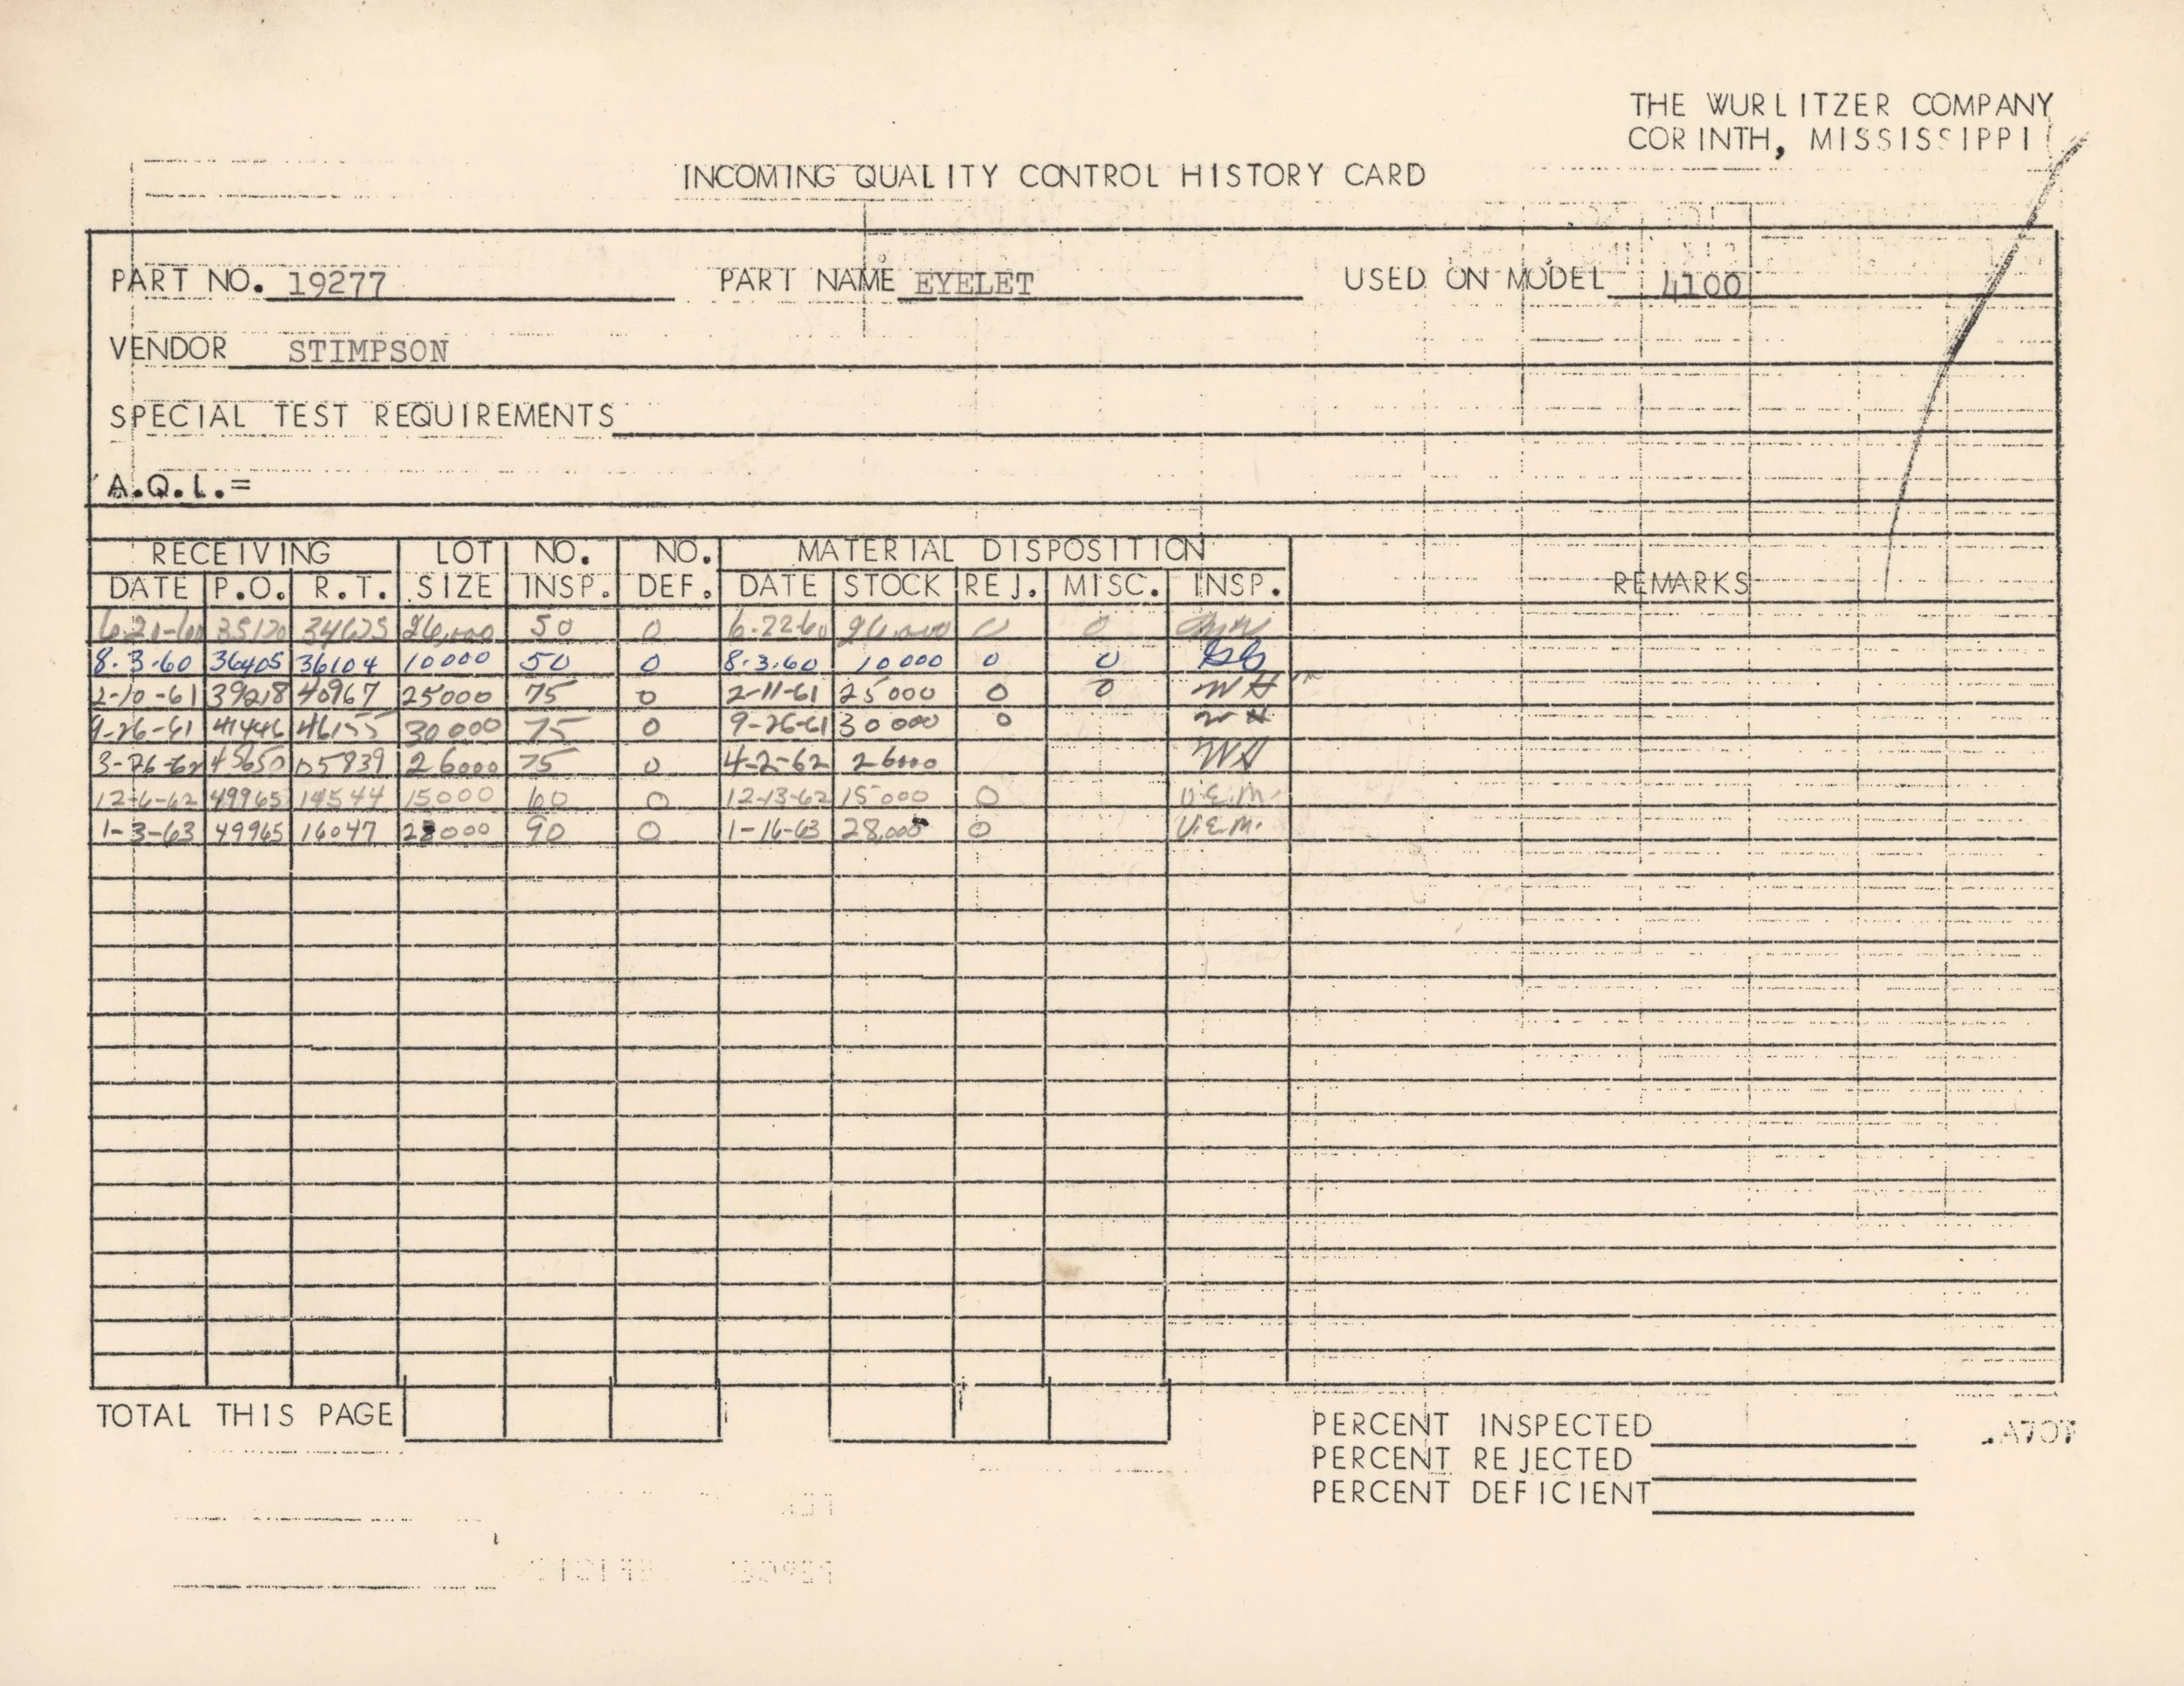 THE WURLITZER COMPANY
CORINTH, MISSISSIPPI
INCOMING QUALITY CONTROL HISTORY CARD
PART NO. 19277 PART NAME EYELET USED ON MODEL 4100
VENDOR STIMPSON
SPECIAL TEST REQUIREMENTS
A.Q.L.=
RECEIVING LOT NO. NO. MATERIAL DISPOSITION
DATE P.O. R.T. SIZE INSP. DEF. DATE STOCK REJ. MISC. INSP. REMARKS
6-21-60 35120 50 0 6-22-60 0 0
8-3-60 36405 36104 10000 50 0 8-3-60 10000 0 0
2-10-61 39218 40967 25000 75 0 2-11-61 25000 0 0 WH
9-26-61 41446 46155 30000 75 0 9-26-61 30000 0 WH
3-26-62 45650 05839 26000 75 0 4-2-62 26000 WH
12-6-62 49965 14544 15000 60 0 12-13-62 15000 0 V.E.M.
1-3-63 49965 16047 28000 90 0 1-16-63 28,000 0 V.E.M.
TOTAL THIS PAGE
PERCENT INSPECTED
PERCENT REJECTED
PERCENT DEFICIENT